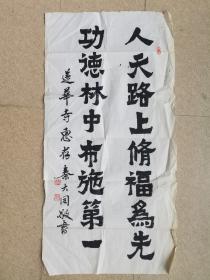 人天路上脩福為先
功德林中布施第一
莲華寺惠存 秦大同敬書